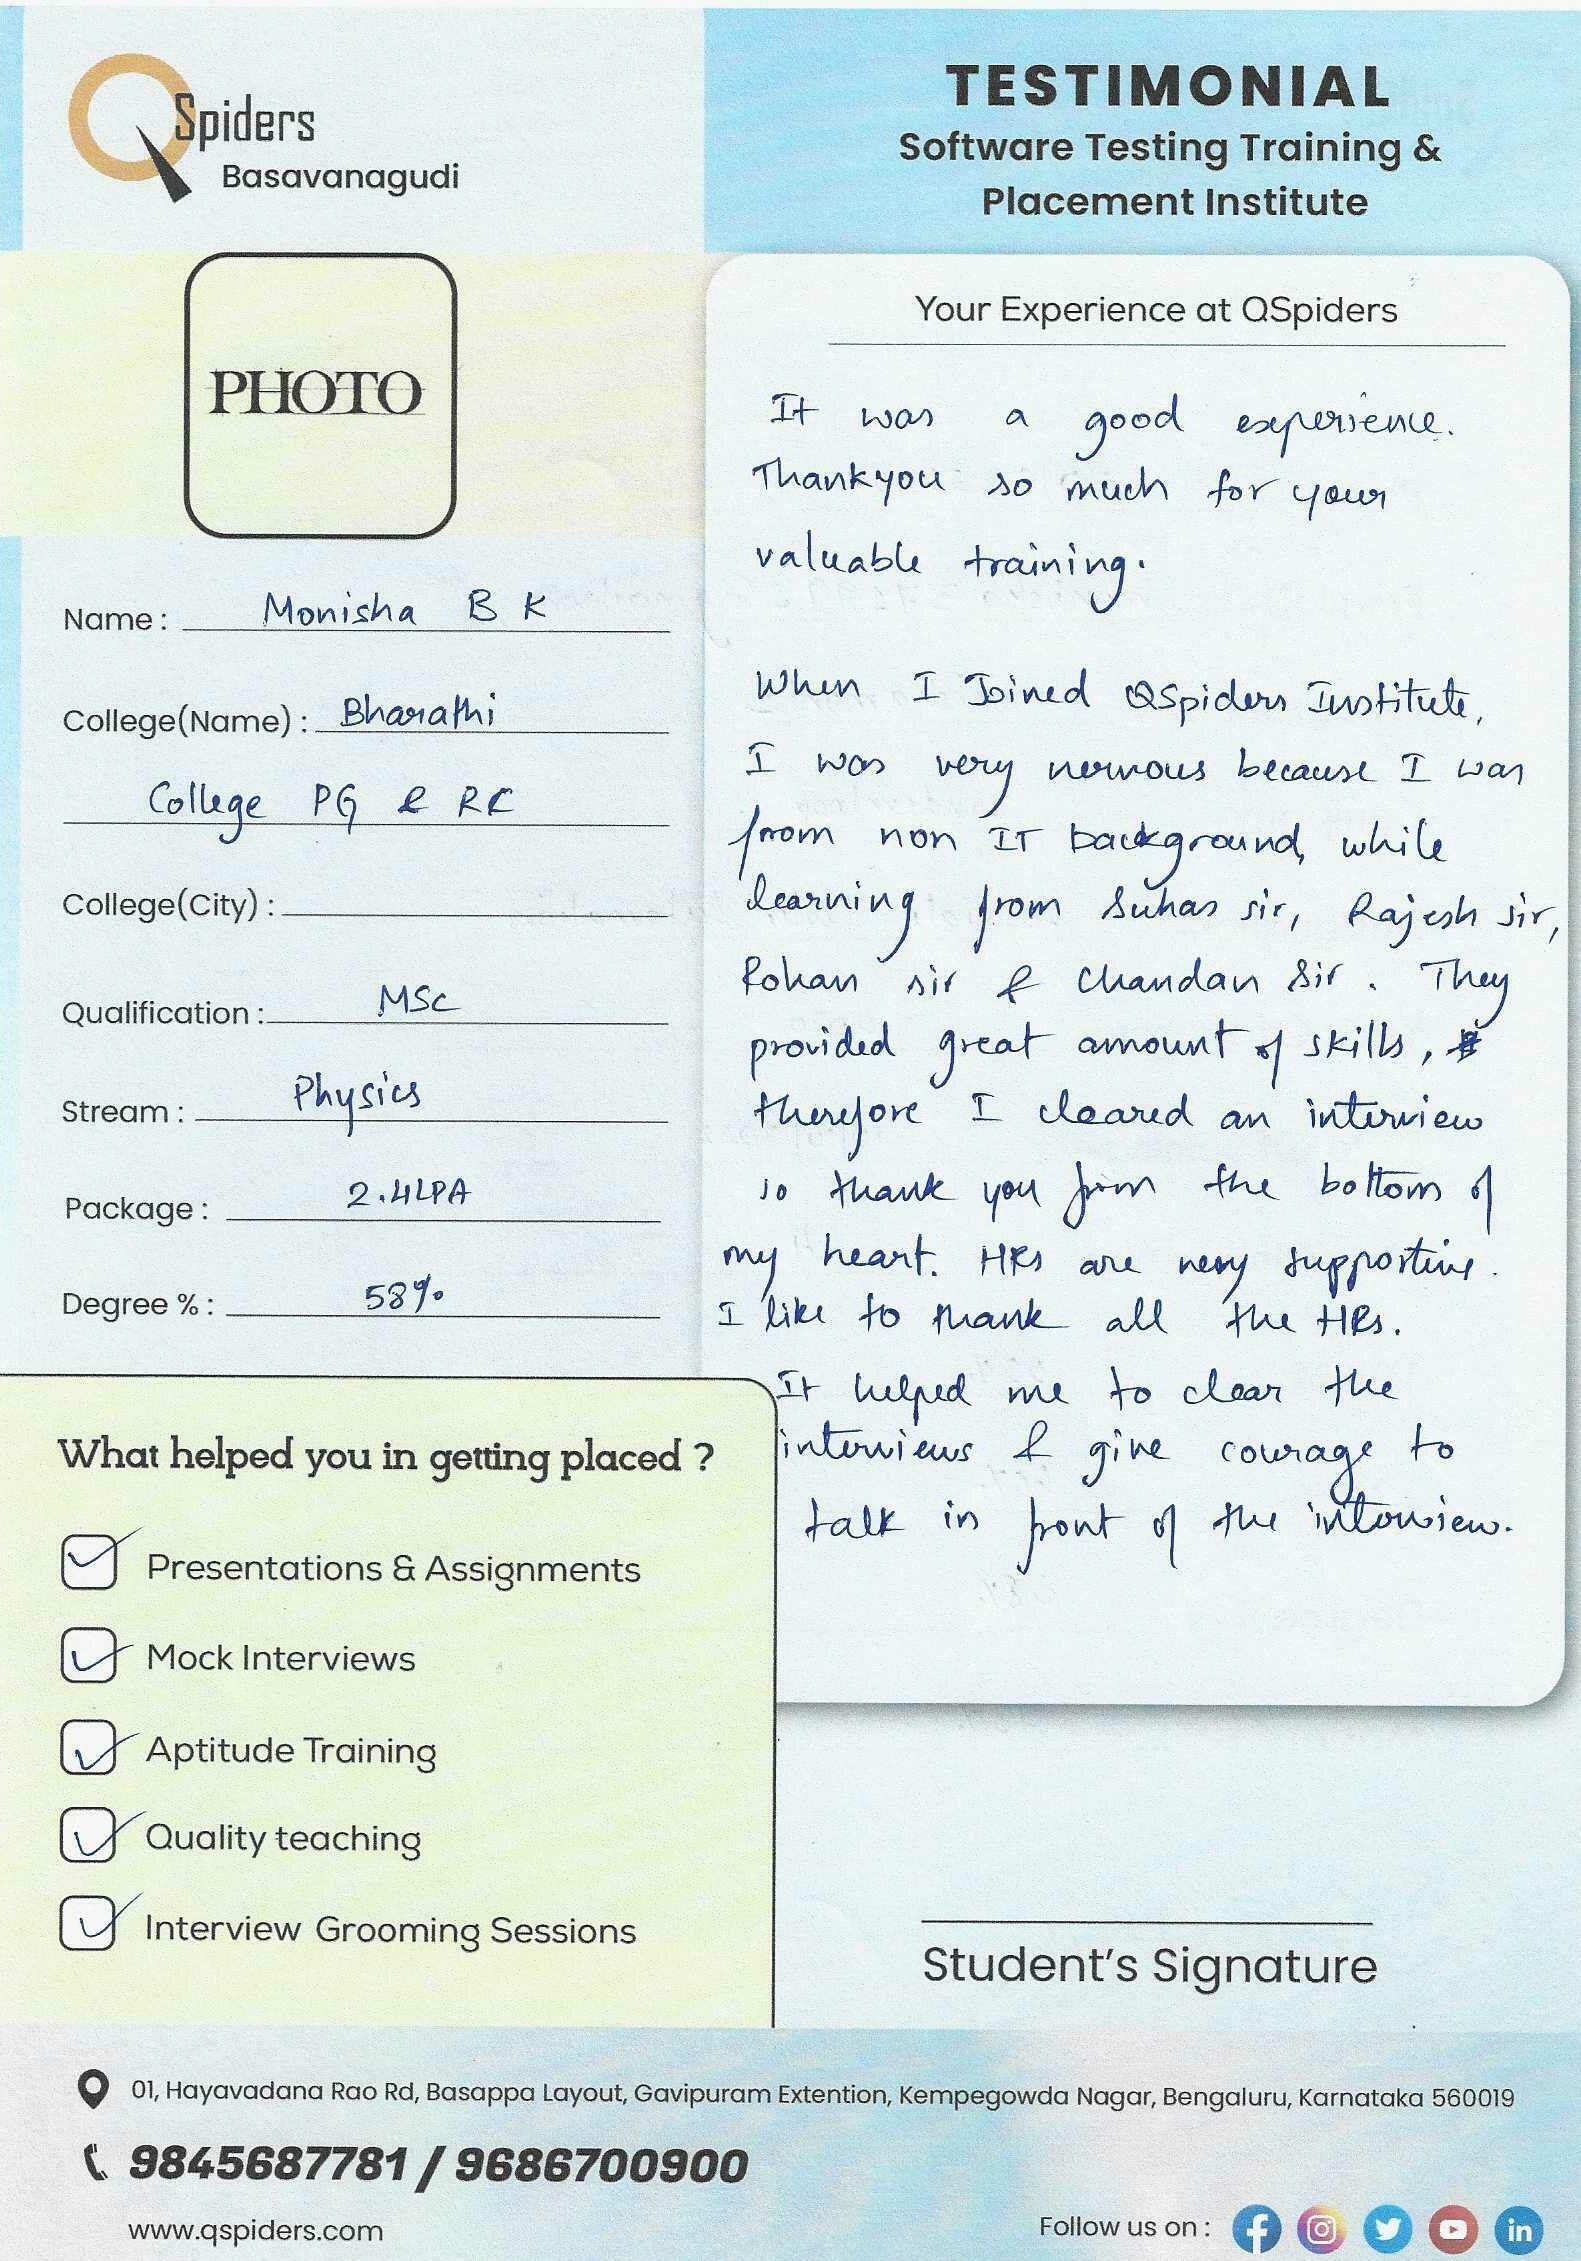 QSpiders
Basavanagudi
TESTIMONIAL
Software Testing Training &
Placement Institute
PHOTO
Name : Monisha B K
College(Name) : Bharathi
College PG & RC
College(City) :
Qualification : MSc
Stream : Physics
Package : 2.4LPA
Degree % : 58%
What helped you in getting placed ?
Presentations & Assignments
Mock Interviews
Aptitude Training
Quality teaching
Interview Grooming Sessions
Your Experience at QSpiders
It was a good experience.
Thankyou so much for your
valuable training.
When I Joined QSpiders Institute,
I was very nervous because I was
from non IT background, while
learning from Suhas sir, Rajesh sir,
Rohan sir & Chandan Sir. They
provided great amount of skills,
therefore I cleared an interview
so thank you from the bottom of
my heart. HRs are very supportive.
I like to thank all the HRs.
It helped me to clear the
interviews & give courage to
talk in front of the interview.
Student's Signature
01, Hayavadana Rao Rd, Basappa Layout, Gavipuram Extention, Kempegowda Nagar, Bengaluru, Karnataka 560019
9845687781 / 9686700900
www.qspiders.com
Follow us on :